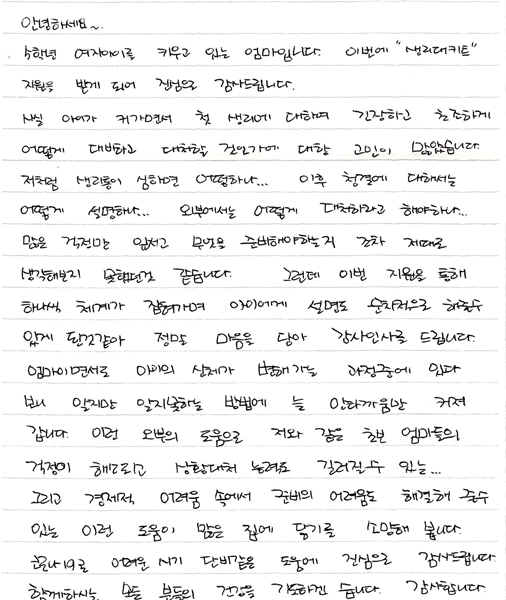 안녕하세요~.
속학년 여자아이를 키우고 있는 엄마입니다. 이번에 "생리대키트"
지원을 받게 되어 진심으로 감사드립니다.
사실 아이가 커가면서 첫 생리에 대하여 긴장하고 초조하게
어떻게 대비하고 대처할 것인가에 대한 고민이 많았습니다.
저처럼 생리통이 심하면 어떡하나... 이후 청결에 대해서는
어떻게 설명하나... 외부에서는 어떻게 대처하라고 해야하나...
많은 걱정만 앞서고 무엇을 준비해야하는지 조차 제대로
생각해보지 못했던것 같습니다. 그런데 이번 지원을 통해
하나씩 체계가 잡혀가며 아이에게 설명도 순차적으로 해줄수
있게 된것같아 정말 마음을 담아 감사인사를 드립니다.
엄마이면서도 아이의 신체가 변해가는 과정중에 있다
보니 알지만 알지못하는 방법에 늘 안타까움만 커져
갑니다. 이런 외부의 도움으로 저와 같은 초보 엄마들의
걱정이 해소되고 상황대처 능력도 길러질수 있는...
그리고 경제적 어려움 속에서 준비의 어려움도 해결해 줄수
있는 이런 도움이 많은 집에 닿기를 소망해 봅니다.
코로나19로 어려운 시기 단비같은 도움에 진심으로 감사드립니다.
함께하시는 모든 분들의 건강을 기도하겠습니다. 감사합니다.